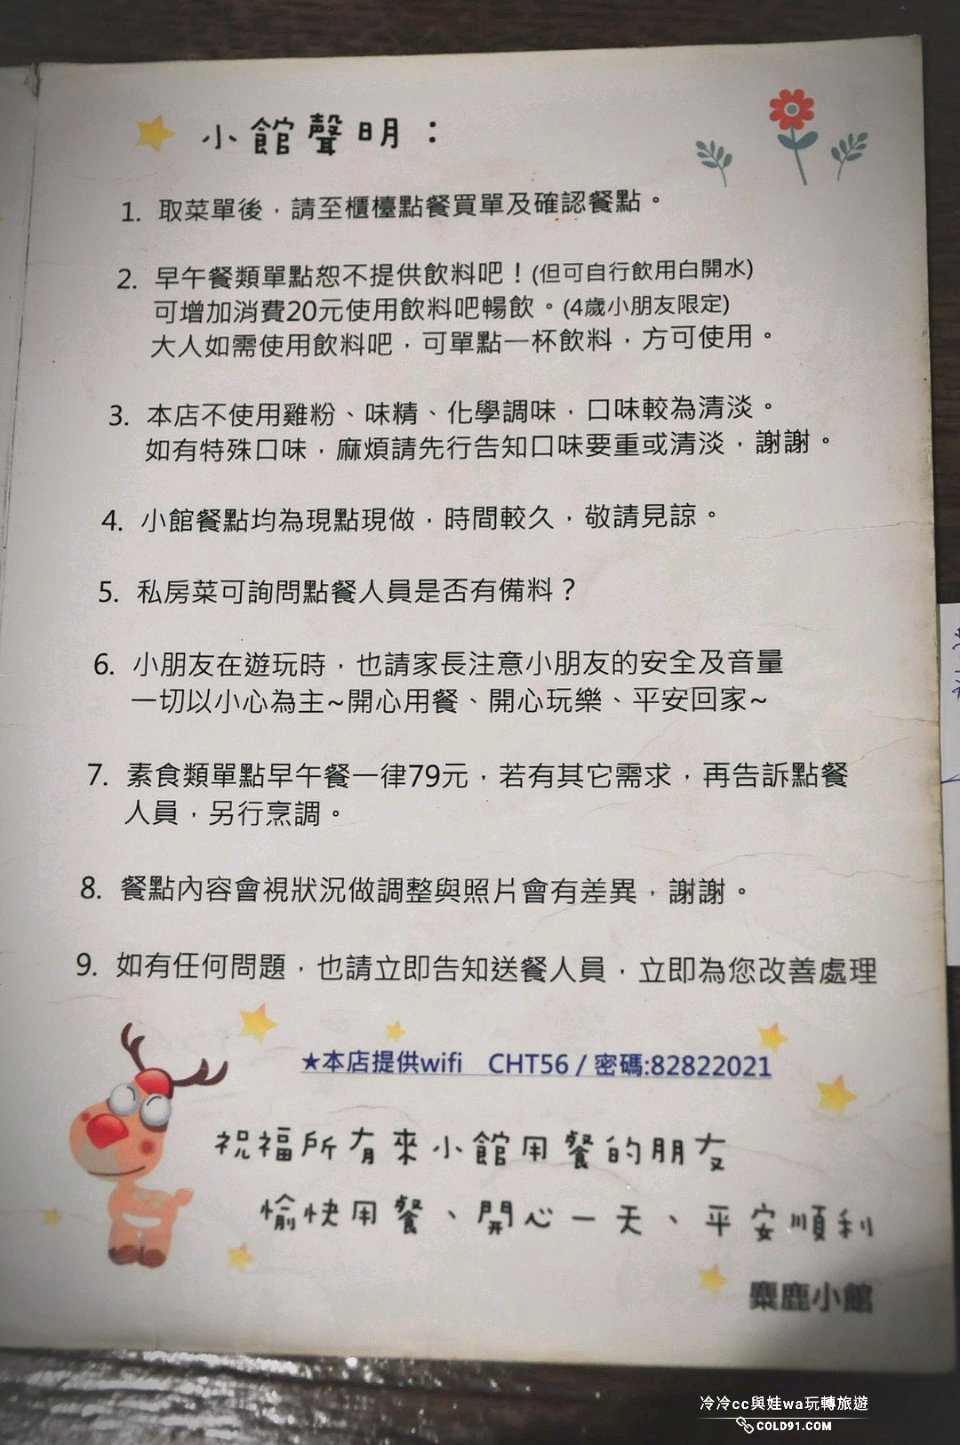 小館聲明：
1. 取菜單後，請至櫃檯點餐買單及確認餐點。
2. 早午餐類單點恕不提供飲料吧！(但可自行飲用白開水)
可增加消費20元使用飲料吧暢飲。(4歲小朋友限定)
大人如需使用飲料吧，可單點一杯飲料，方可使用。
3. 本店不使用雞粉、味精、化學調味，口味較為清淡。
如有特殊口味，麻煩請先行告知口味要重或清淡，謝謝。
4. 小館餐點均為現點現做，時間較久，敬請見諒。
5. 私房菜可詢問點餐人員是否有備料？
6. 小朋友在遊玩時，也請家長注意小朋友的安全及音量
一切以小心為主~開心用餐、開心玩樂、平安回家~
7. 素食類單點早午餐一律79元，若有其它需求，再告訴點餐
人員，另行烹調。
8. 餐點內容會視狀況做調整與照片會有差異，謝謝。
9. 如有任何問題，也請立即告知送餐人員，立即為您改善處理
★本店提供wifi CHT56 / 密碼:82822021
祝福所有來小館用餐的朋友
愉快用餐、開心一天、平安順利
麋鹿小館
冷冷cc與娃wa玩轉旅遊
COLD91.COM